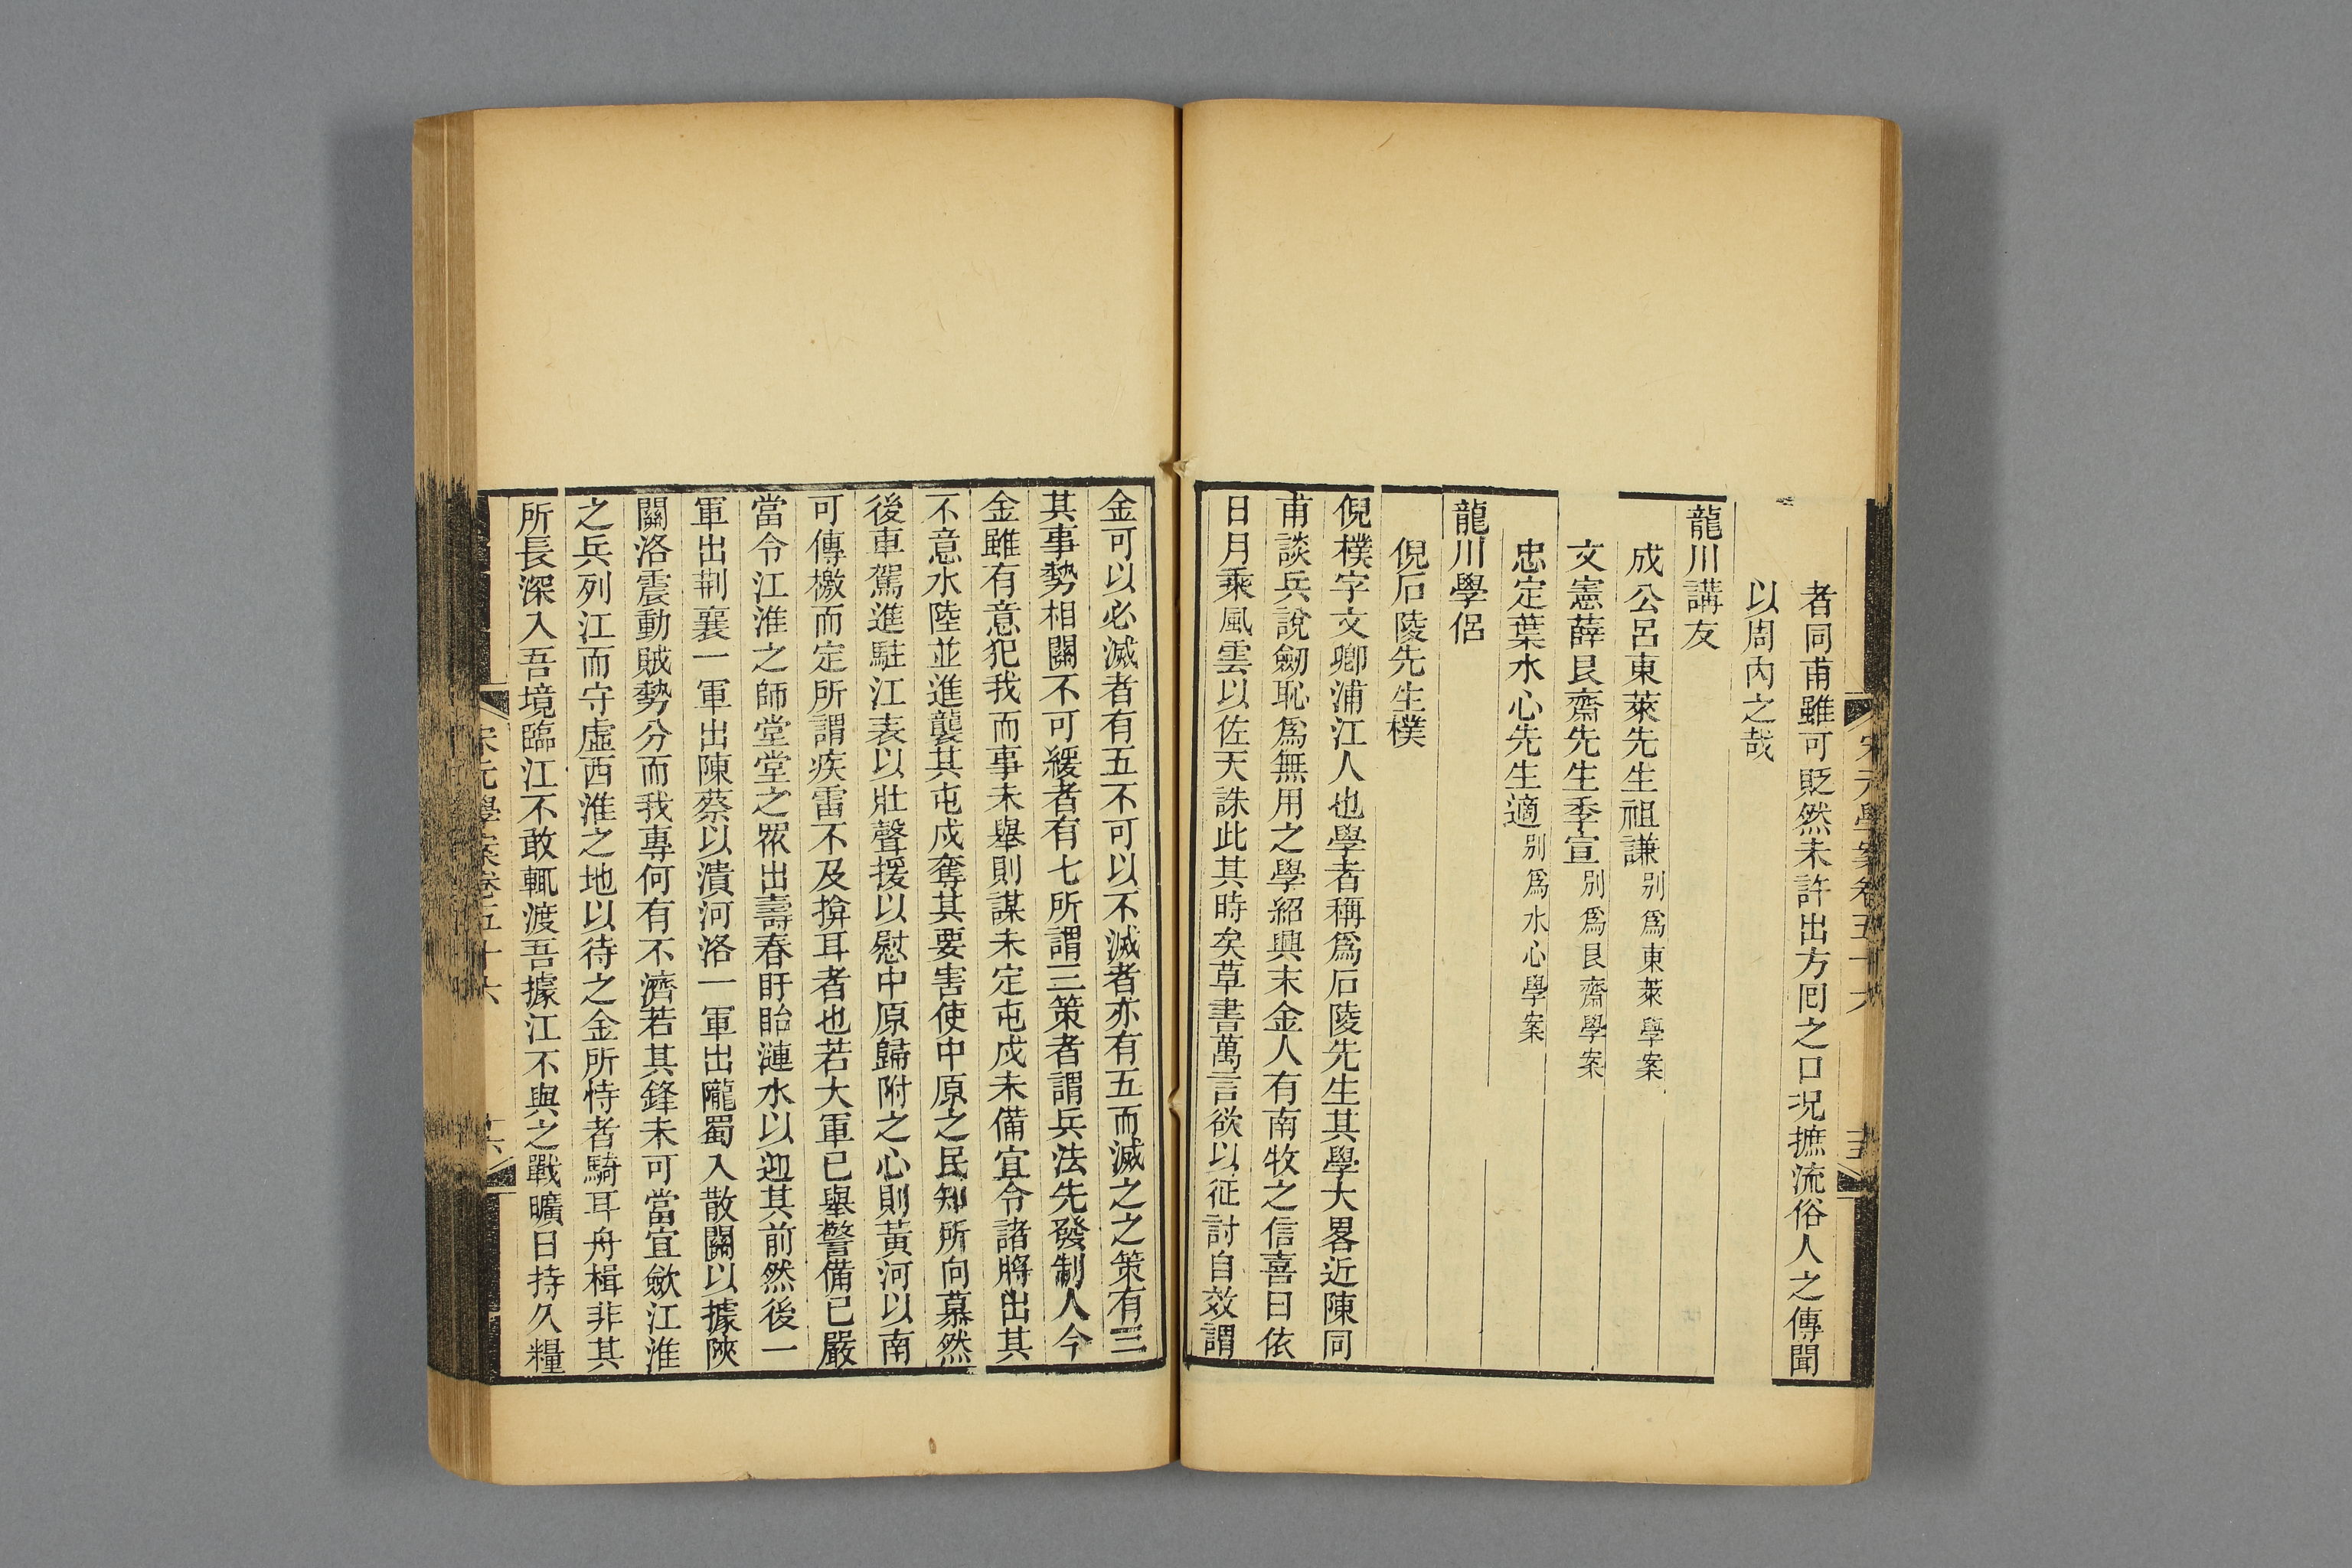 宋元學案卷五十六
者同甫雖可貶然未許出方囘之口況摭流俗人之傳聞
以周内之哉
龍川講友
成公呂東萊先生祖謙别爲東萊學案
文憲薛艮齋先生季宣别爲艮齋學案
忠定葉水心先生適别爲水心學案
龍川學侶
倪石陵先生樸
倪樸字文卿浦江人也學者稱爲石陵先生其學大畧近陳同
甫談兵說劒恥爲無用之學紹興末金人有南牧之信喜曰依
日月乘風雲以佐天誅此其時矣草書萬言欲以征討自效謂
金可以必滅者有五不可以不滅者亦有五而滅之之策有三
其事勢相關不可緩者有七所謂三策者謂兵法先發制人今
金雖有意犯我而事未舉則謀未定屯戍未備宜令諸將出其
不意水陸並進襲其屯戍奪其要害使中原之民知所向慕然
後車駕進駐江表以壯聲援以慰中原歸附之心則黃河以南
可傳檄而定所謂疾雷不及揜耳者也若大軍已舉警備已嚴
當令江淮之師堂堂之眾出壽春盱眙漣水以迎其前然後一
軍出荆襄一軍出陳蔡以潰河洛一軍出隴蜀入散關以據陝
關洛震動賊勢分而我專何有不濟若其鋒未可當宜斂江淮
之兵列江而守虛西淮之地以待之金所恃者騎耳舟楫非其
所長深入吾境臨江不敢輒渡吾據江不與之戰曠日持久糧
宋元學案卷五十六